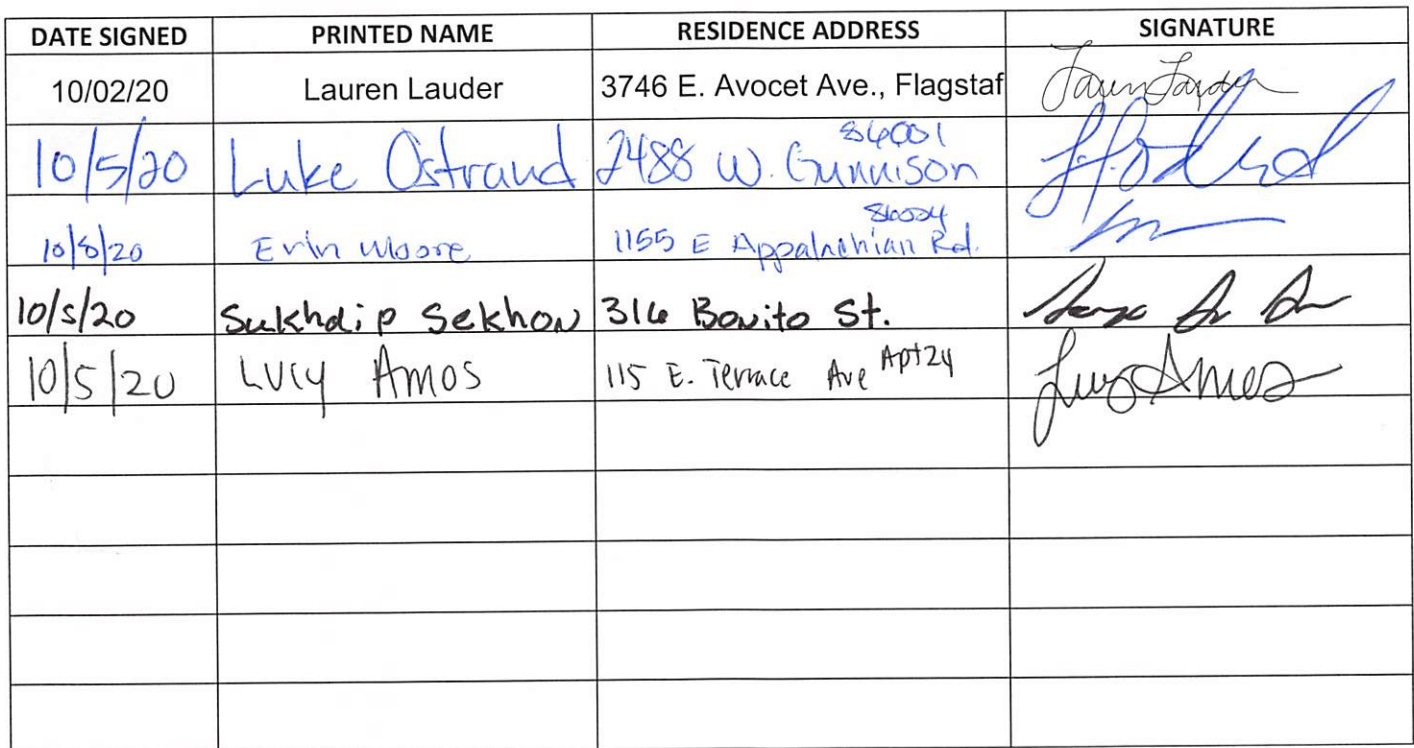 DATE SIGNED PRINTED NAME RESIDENCE ADDRESS SIGNATURE
10/02/20 Lauren Lauder 3746 E. Avocet Ave., Flagstaf
86001
10/5/20 Luke Ostrand 2488 W. Gunnison
86004
10/8/20 Erin Moore 1155 E Appalachian Rd.
10/5/20 Sukhdip Sekhon 316 Bonito St.
10/5/20 Lucy Amos 115 E. Terrace Ave Apt 24 Lucy Amos